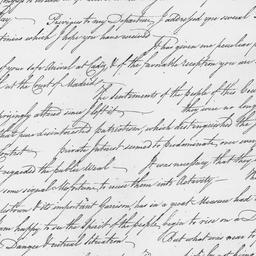 lay. Previous to my Departure, I adressed you several
tories which I hope you have received
It has given me peculiar
of your safe Arrival at Cadiz & of the favorable reception you me
but the Court of Madrid.
The Sentiments of the People of this Cou
prizingly altered since I left it. They were no long
that pure disinterested Patriotism, which distinguished they
Contest. Private Interest seemed to predominate, over every
regarded the public Weal. It was necessary, that they
some signal Misfortune, to rouse them into Activity.
lestown & its important Garrison, has in a great Measure had t
am happy to see the Spirit of the people, begin to rise on so
Danger & critical Situation. But what was mean to